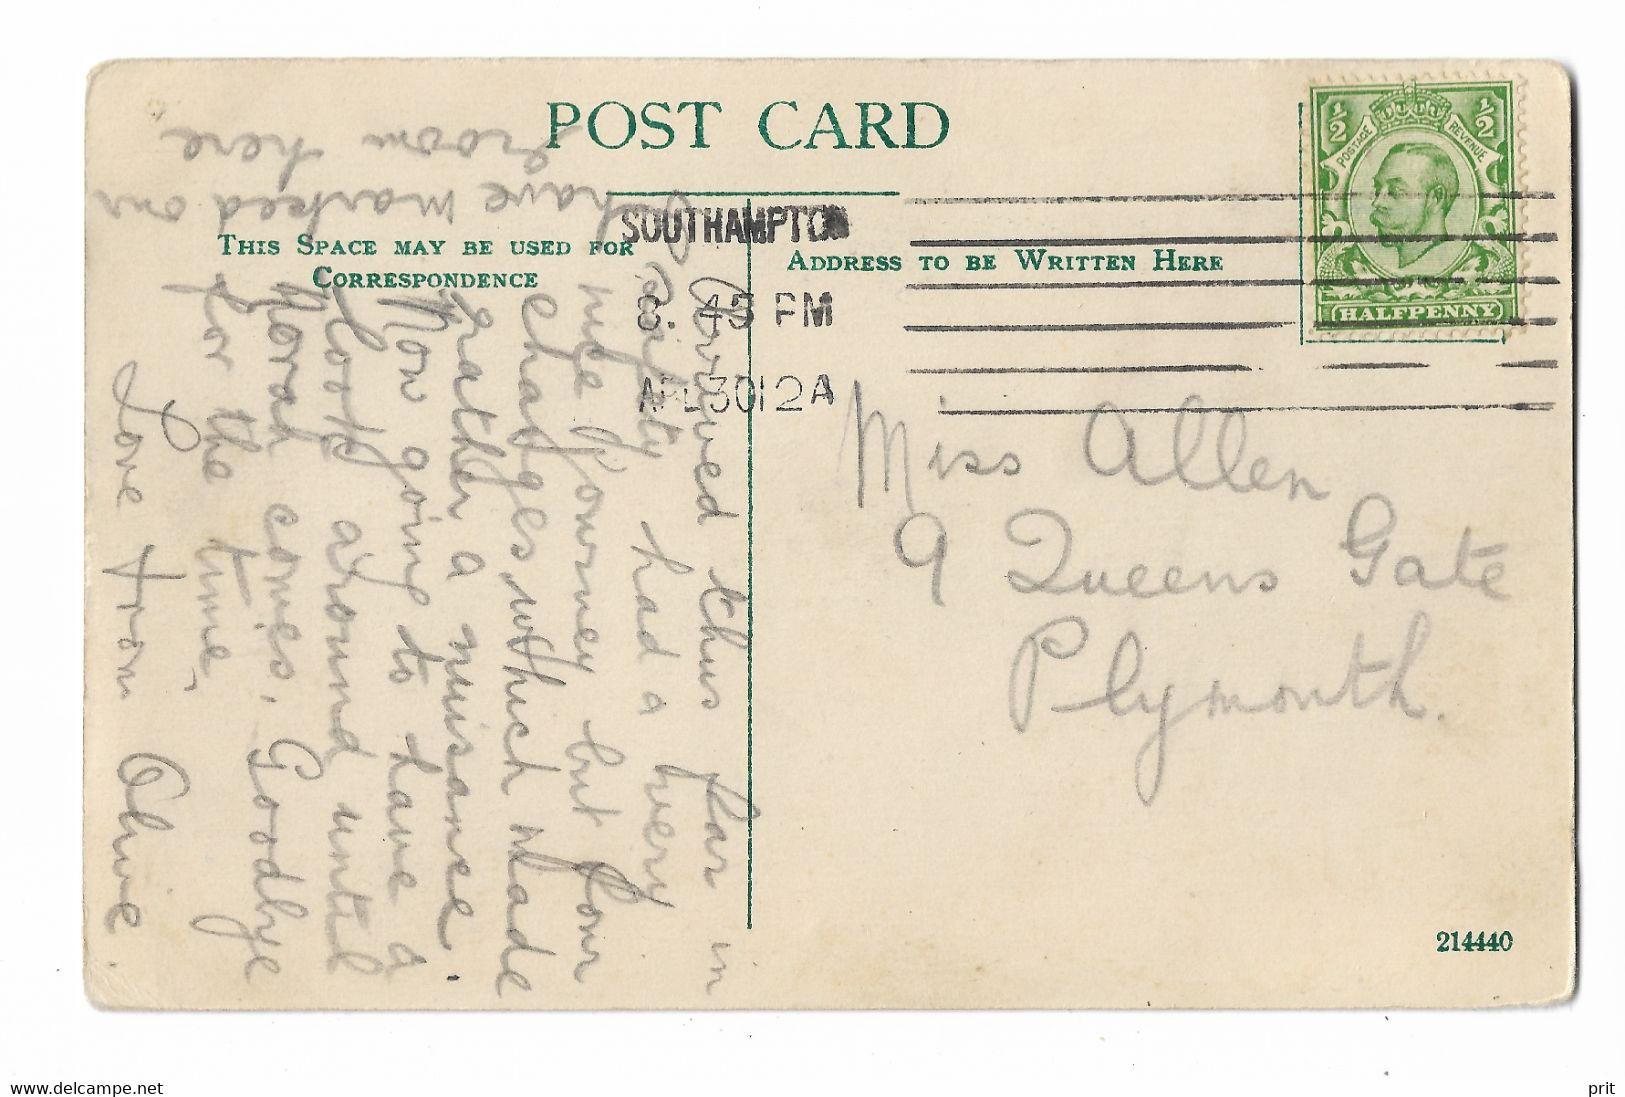 POST CARD
THIS SPACE MAY BE USED FOR
CORRESPONDENCE
ADDRESS TO BE WRITTEN HERE
SOUTHAMPTON
8.45 PM
APL 30 12 A
½ ½
POSTAGE REVENUE
HALFPENNY
Miss Allen
9 Queens Gate
Plymouth.
214440
Arrived thus far in
safety had a very
nice journey but four
changes which made
rather a nuisance.
Now going to have a
look around until
Norah comes. Goodbye
for the time,
Love from Olive.
have marked our
room here
delcampe.net
prit